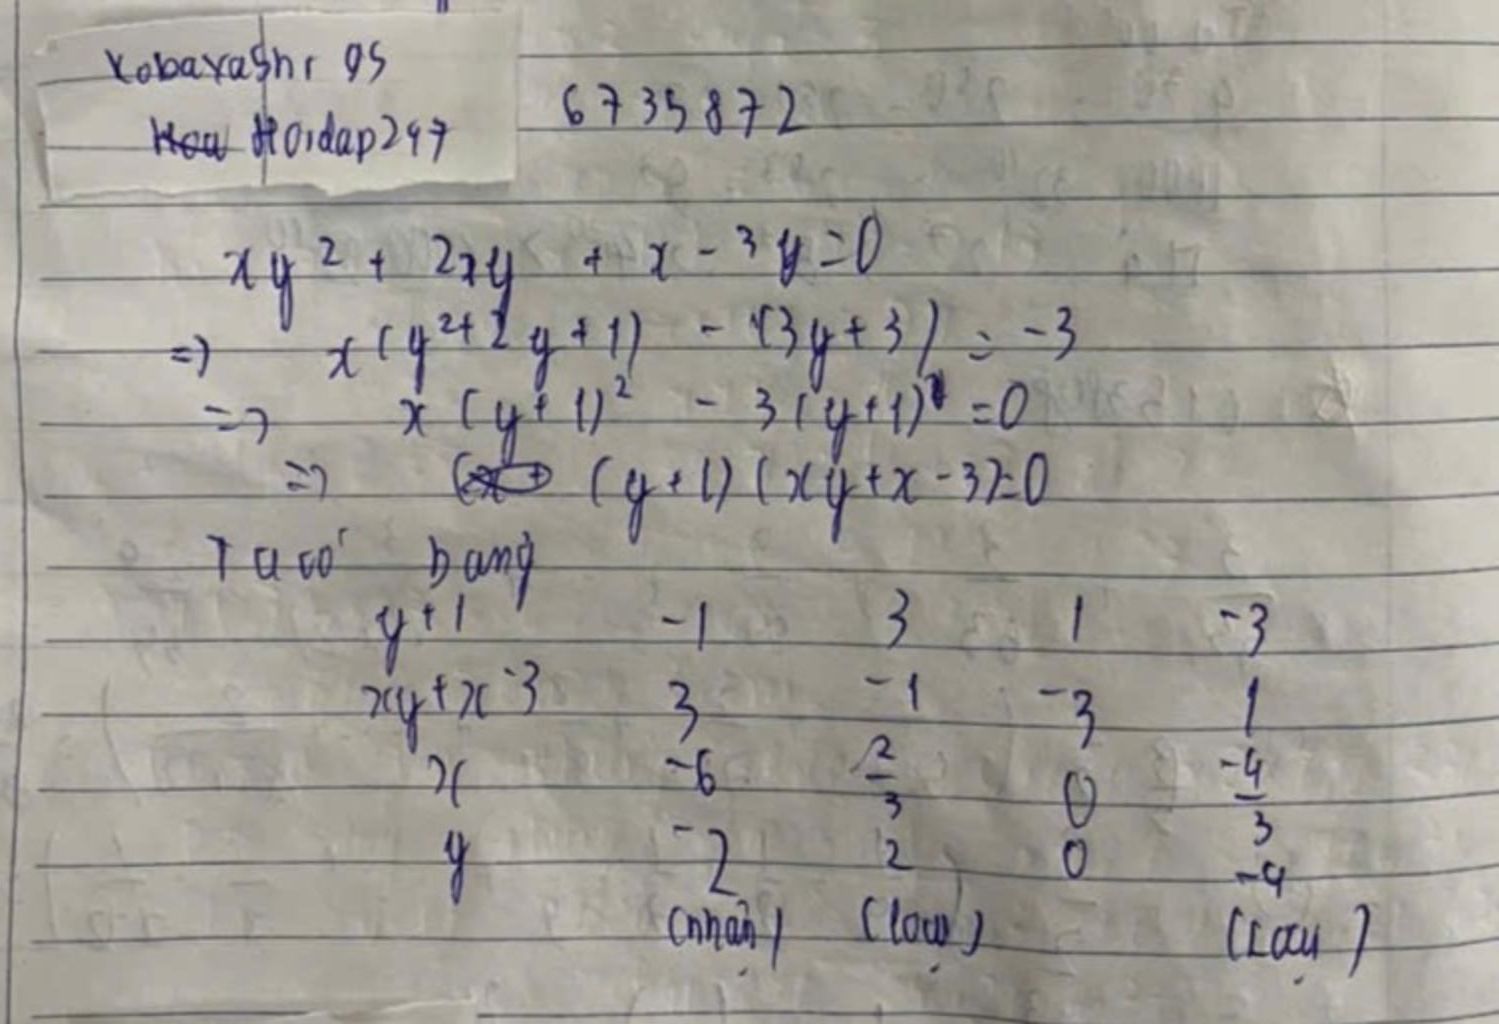 Kobayashi 95
Hoidap247
6735872
xy² + 2xy + x - 3y = 0
=> x(y² + 2y + 1) - (3y + 3) = -3
=> x(y + 1)² - 3(y + 1) = 0
=> (y + 1)(xy + x - 3) = 0
Ta có bảng
y + 1 -1 3 1 -3
xy + x - 3 3 -1 -3 1
x -6 2/3 0 -4/3
y -2 2 0 -4
(nhận) (loại) (Loại)